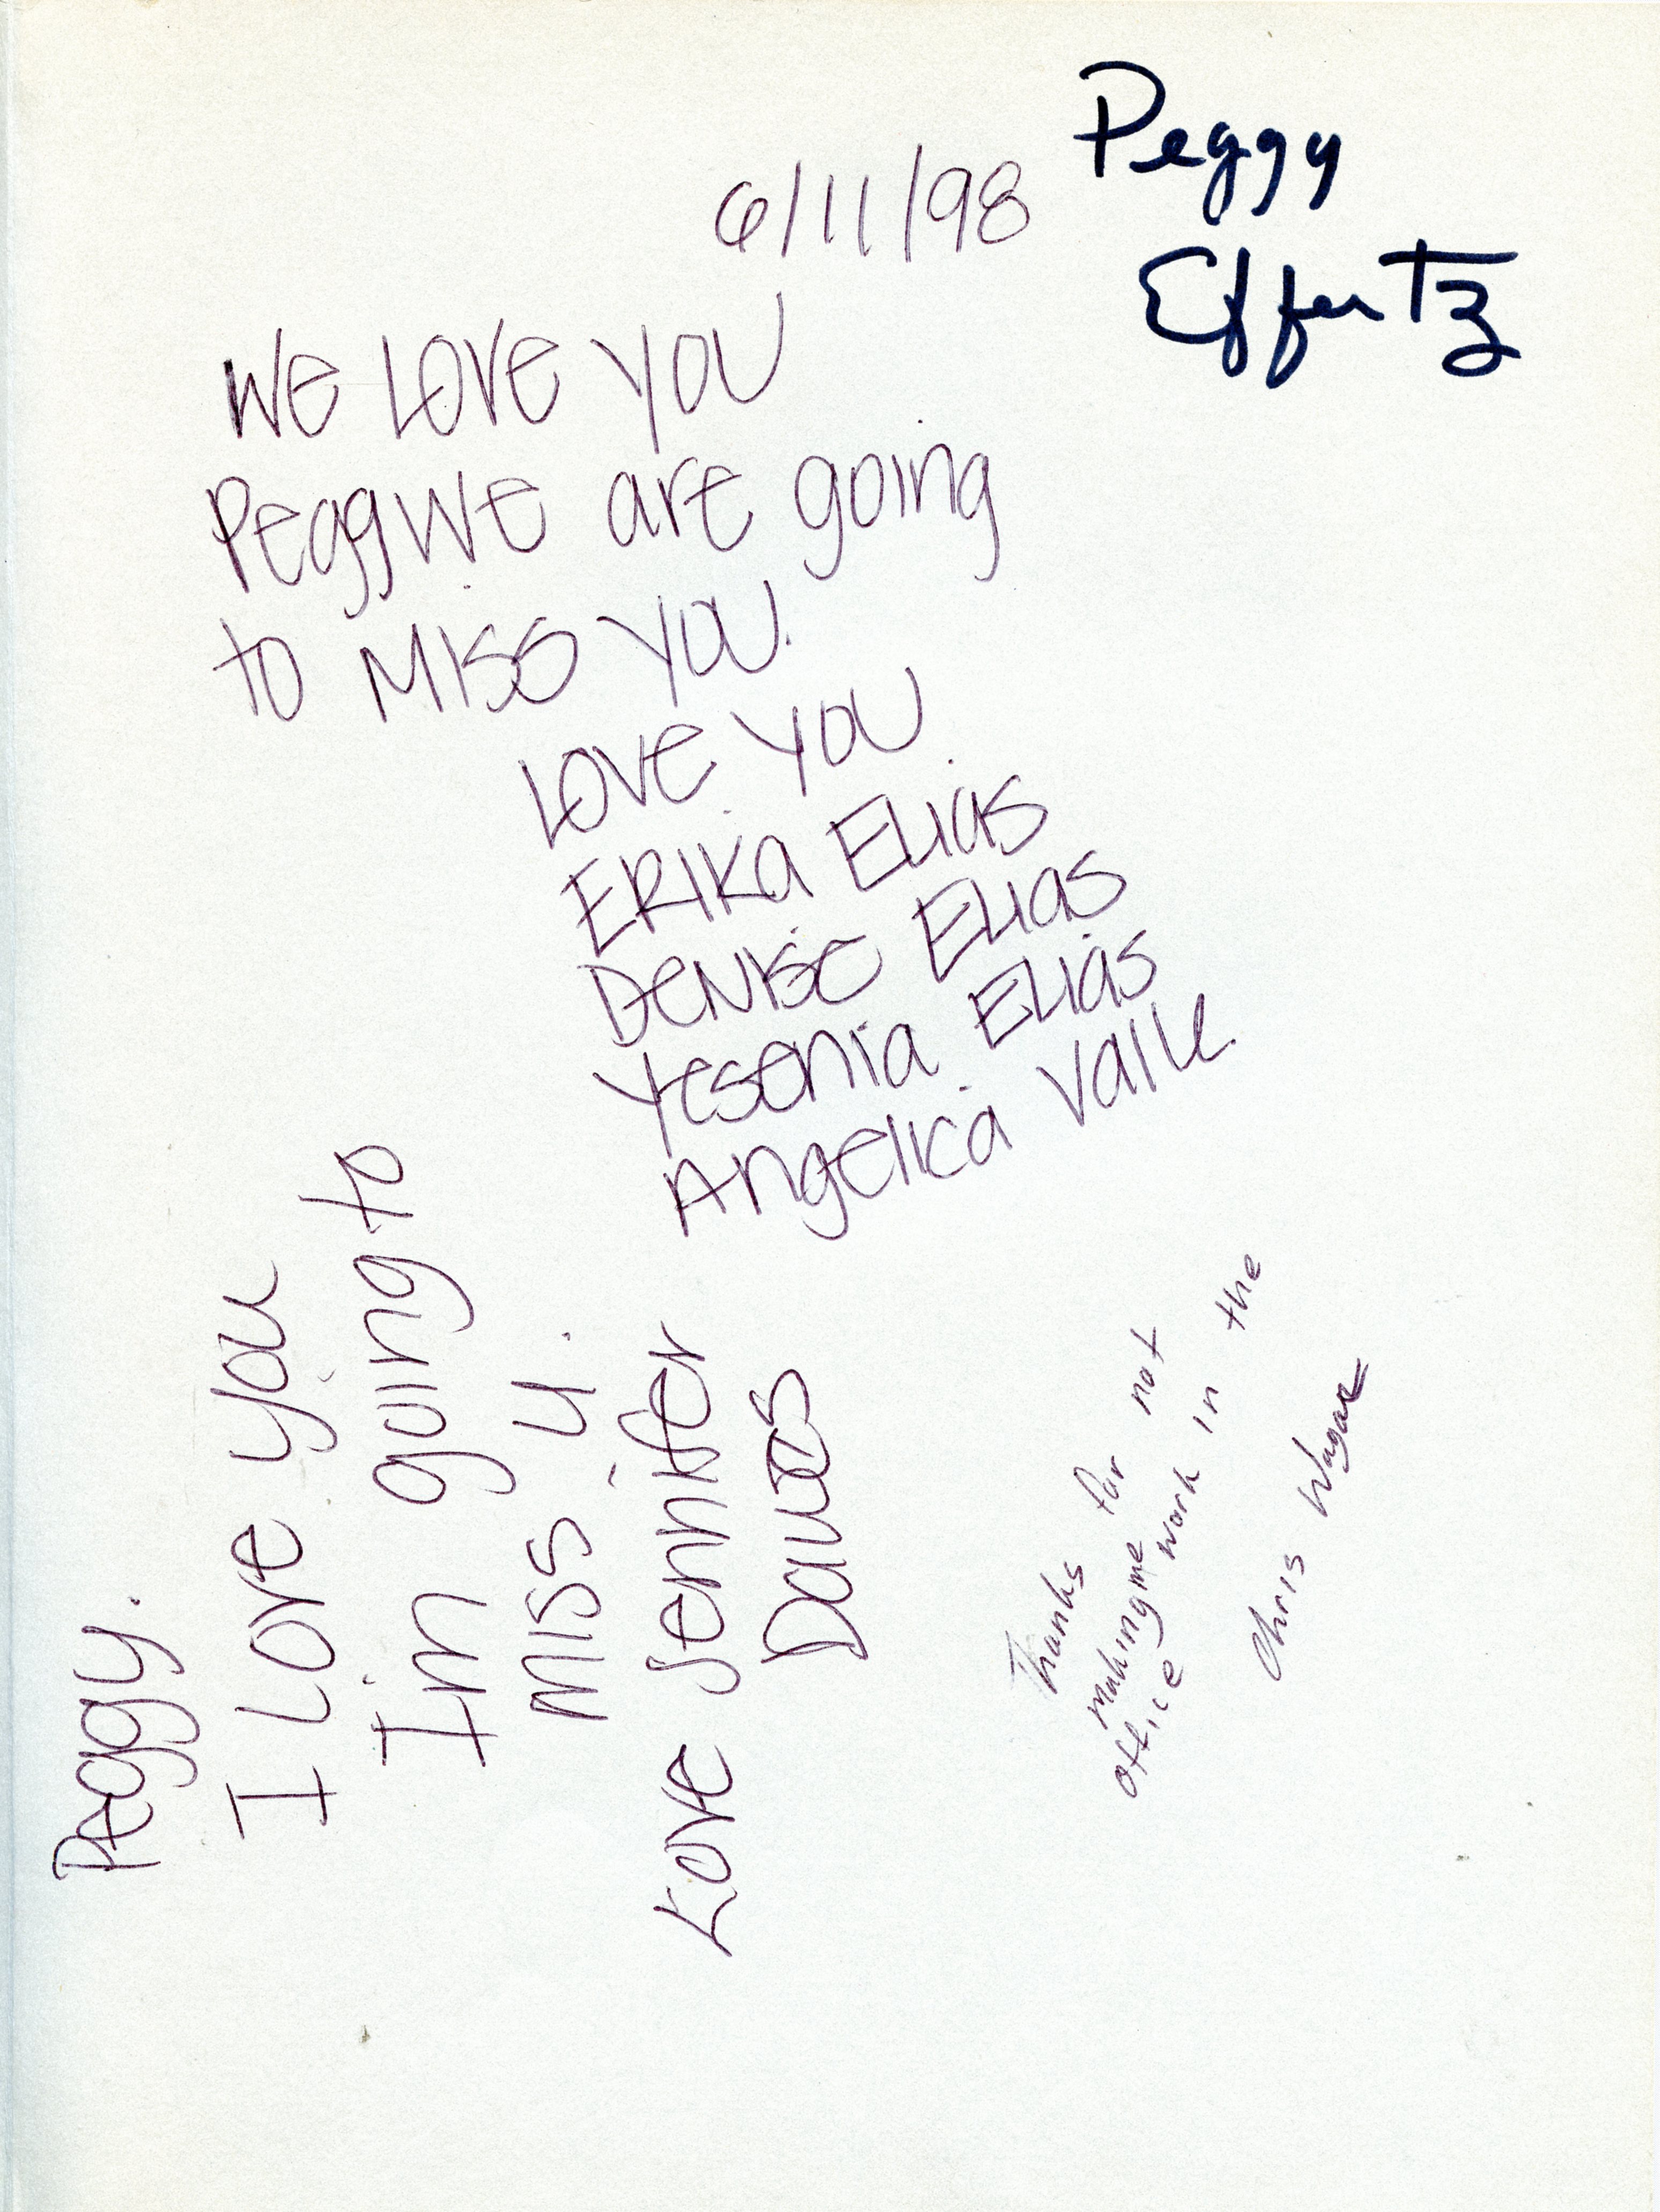 Peggy
Effertz
6/11/98
We Love You
Pegg We are going
to Miss You.
Love You
Erika Elias
Denise Elias
Yesenia Elias
Angelica Valle
Peggy.
I Love you
I'm going to
miss u.
Love Jennifer
Thanks for not
making me work in the
office
Chris